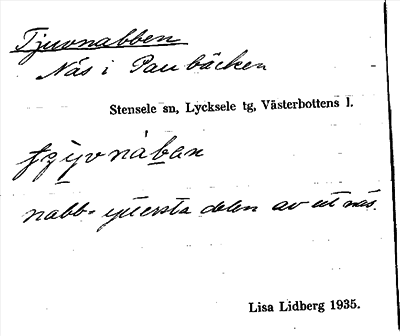 Tjuvnabben
Näs i Paubäcken
Stensele sn, Lycksele tg, Västerbottens l.
nabb = yttersta delen av ett näs.
Lisa Lidberg 1935.